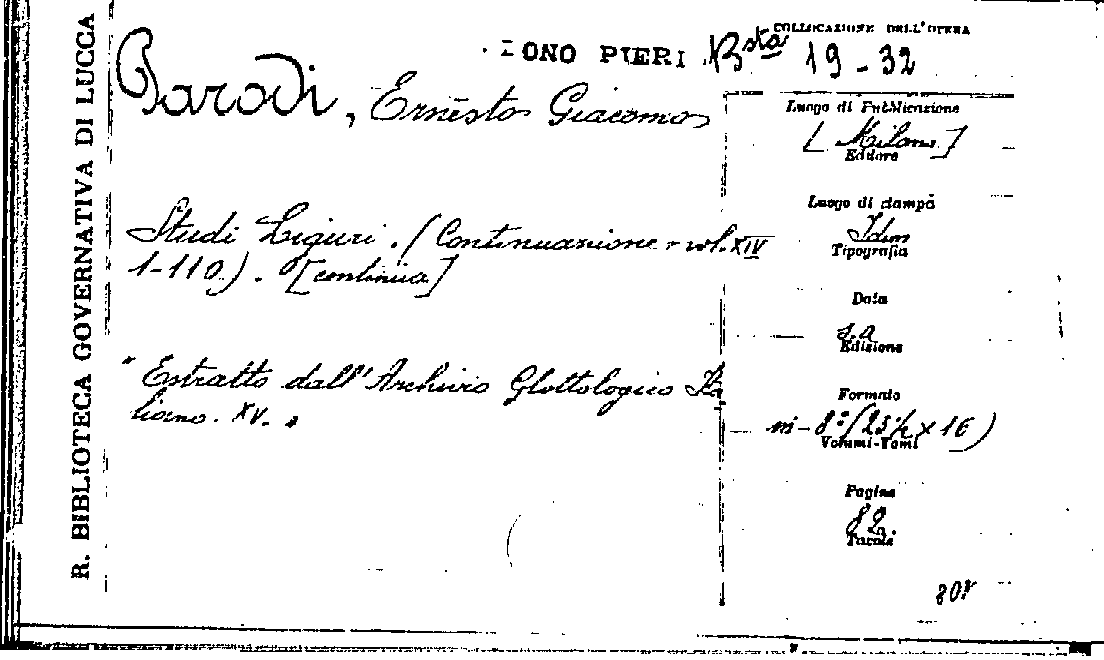 R. BIBLIOTECA GOVERNATIVA DI LUCCA
COLLOCAZIONE DELL'OPERA
DONO PIERI Bsta 19-32
Parodi, Ernesto Giacomo
Studi Liguri. (Continuazione - vol. XIV
1-110). [continua]
"Estratto dall'Archivio Glottologico Ita
liano. XV."
Luogo di Pubblicazione
[Milano]
Editore
Luogo di stampa
Idem
Tipografia
Data
s.a
Edizione
Formato
in-8º (23½ x 16)
Volumi-Tomi
Pagine
82.
Tavole